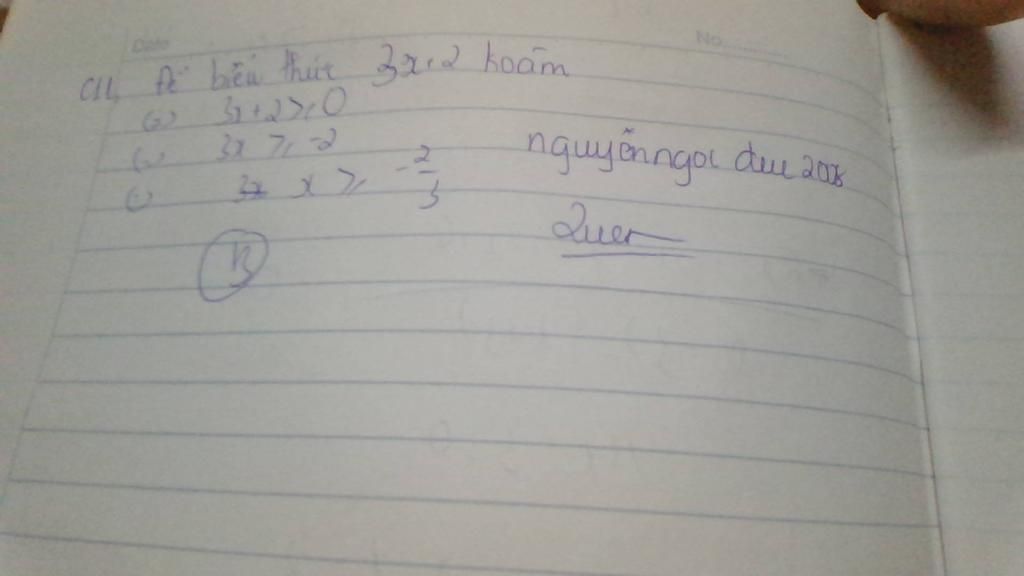 No.
C11, Để biểu thức 3x+2 k âm
(=) 3x+2 ≥ 0
(=) 3x ≥ -2
(=) x ≥ -2/3
nguyễn ngọc đức 2008
B